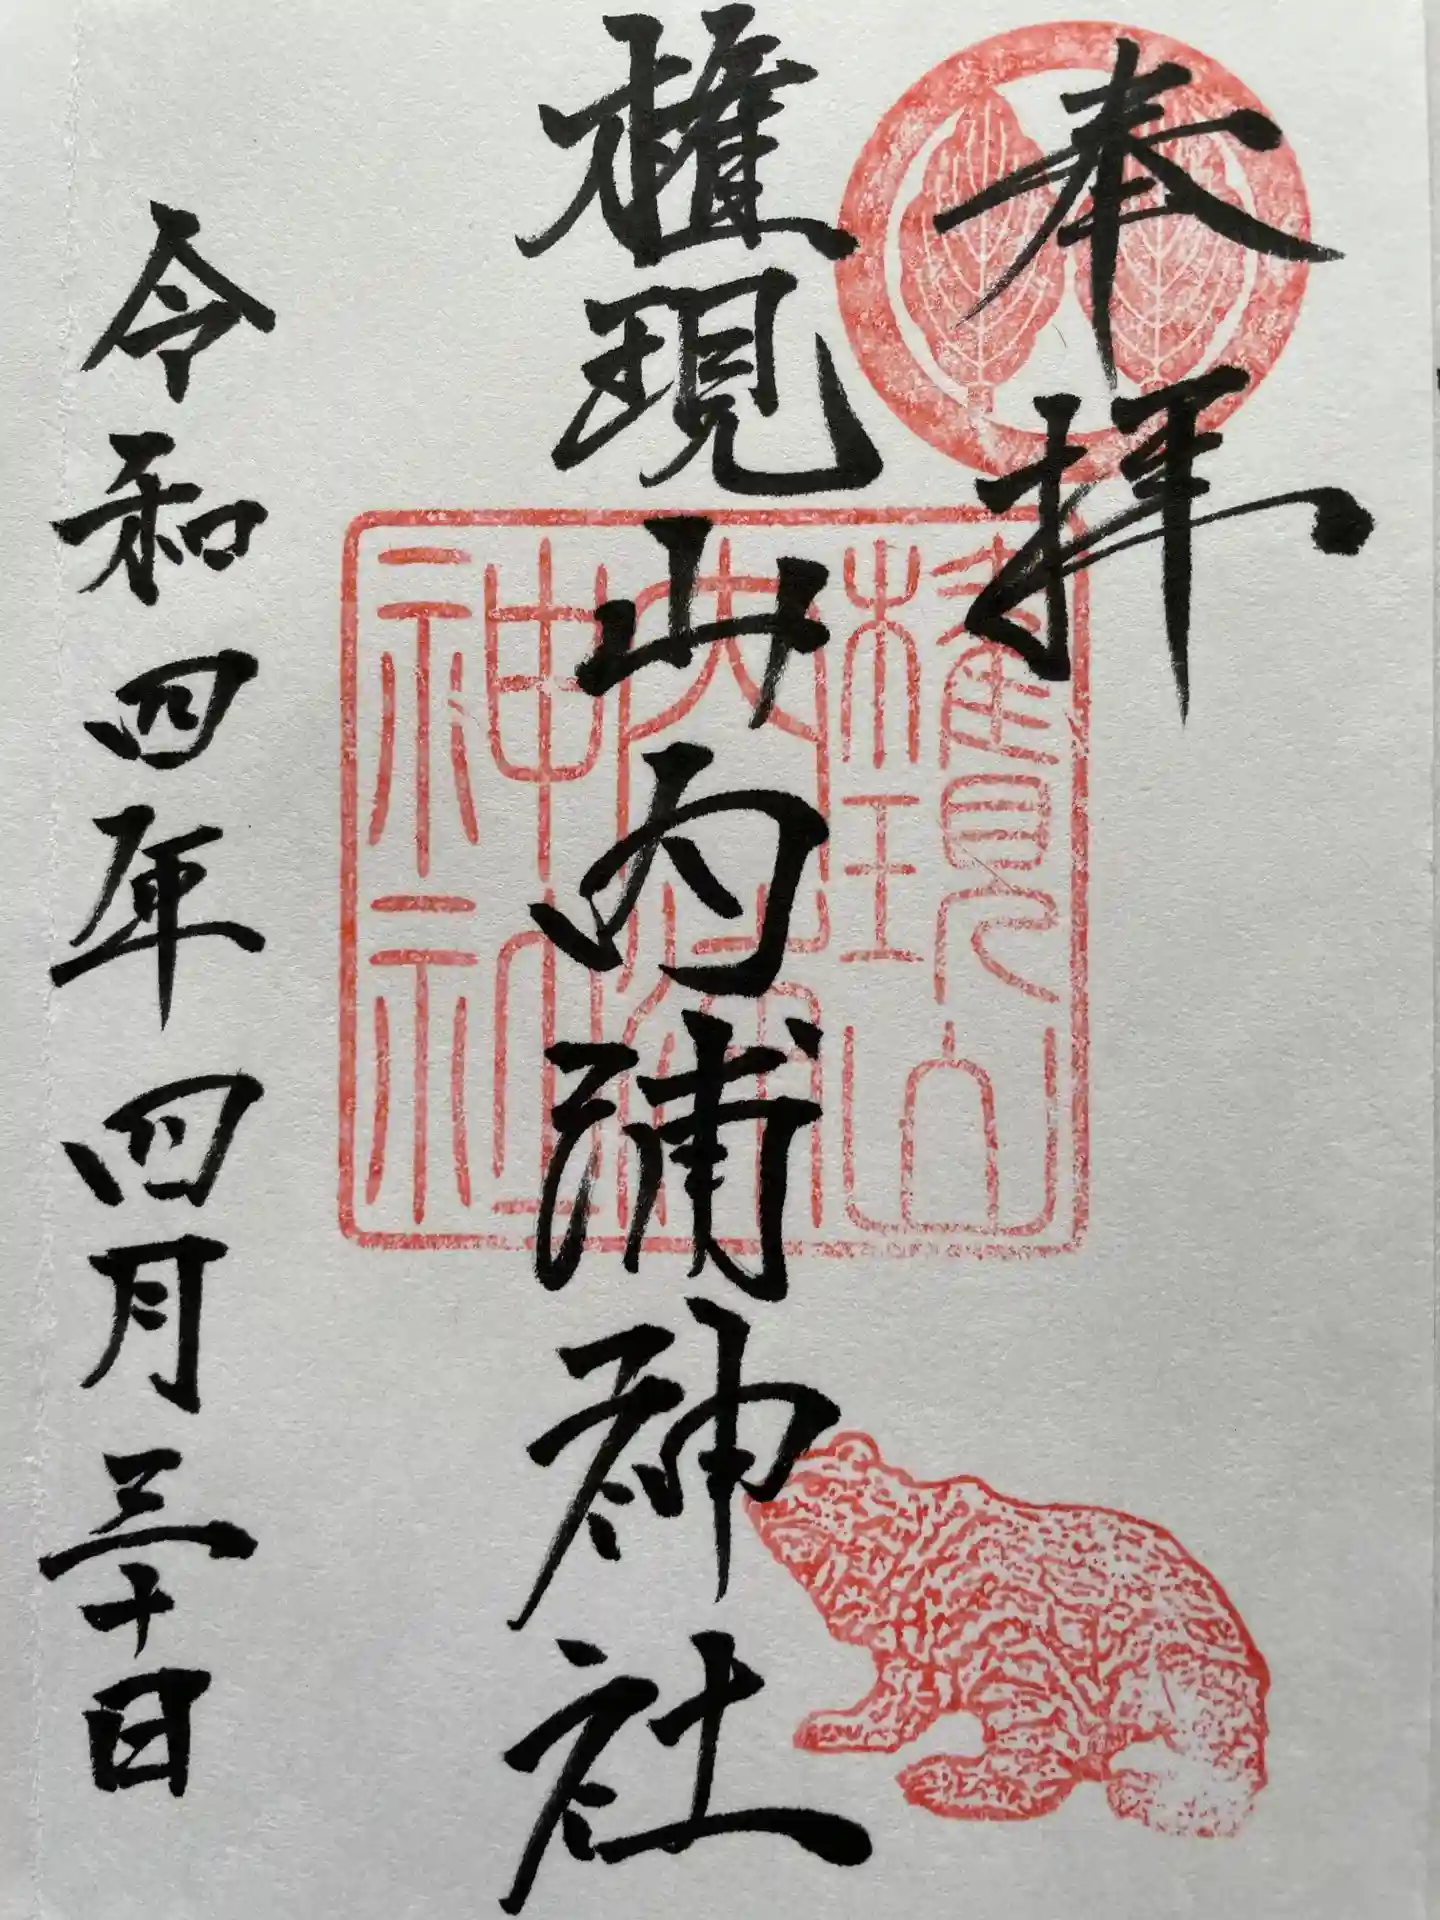 奉拝
権現山内浦神社
令和四年四月三十日
権現山
内浦
神社